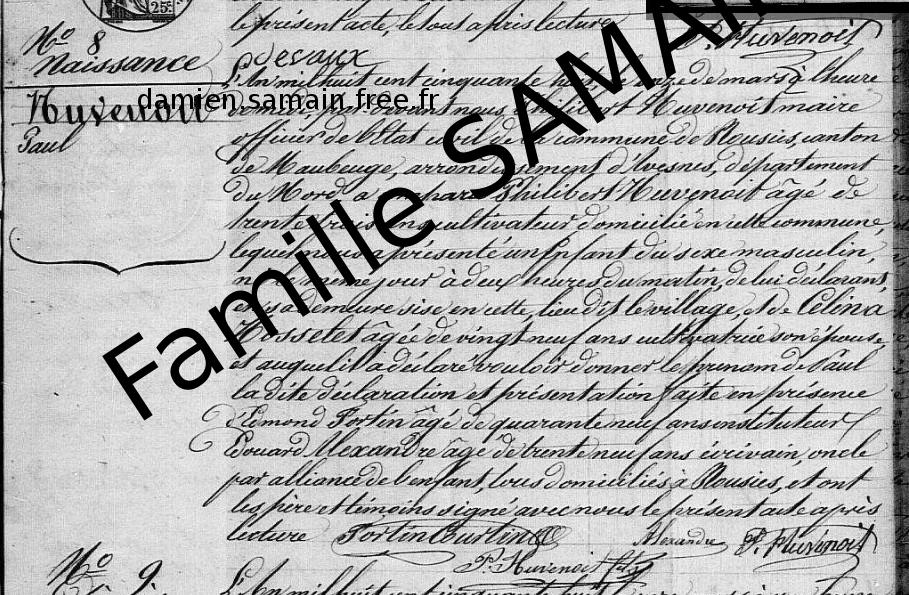 25c.
le présent acte, le tout après lecture
P. Huvenoit
No 8
Naissance
Huvenoit
Paul
L'An mil huit cent cinquante huit, le onze de mars à l'heure
de midi, par devant nous Philibert Huvenoit maire
officier de l'Etat civil de la commune de Rousies, canton
de Maubeuge, arrondissement d'Avesnes, département
du Nord a comparu Philibert Huvenoit âgé de
trente trois ans cultivateur domicilié en cette commune,
lequel nous a présenté un Enfant du sexe masculin,
né ce même jour à deux heures du matin, de lui déclarant,
en sa demeure sise en cette, lieu dit le village, et de Célina
Gosselet âgée de vingt neuf ans cultivatrice son épouse,
et auquel il a déclaré vouloir donner le prénom de Paul
la dite déclaration et présentation faite en présence
d'Edmond Fortin âgé de quarante neuf ans instituteur
Edouard Alexandre âgé de trente neuf ans écrivain, oncle
par alliance de l'enfant, tous domiciliés à Rousies, et ont
les père et témoins signé avec nous le présent acte après
lecture
Alexandre
P. Huvenoit
P. Huvenoit fils
No 9
L'An mil huit cent cinquante huit
damien.samain.free.fr
Famille SAMAIN